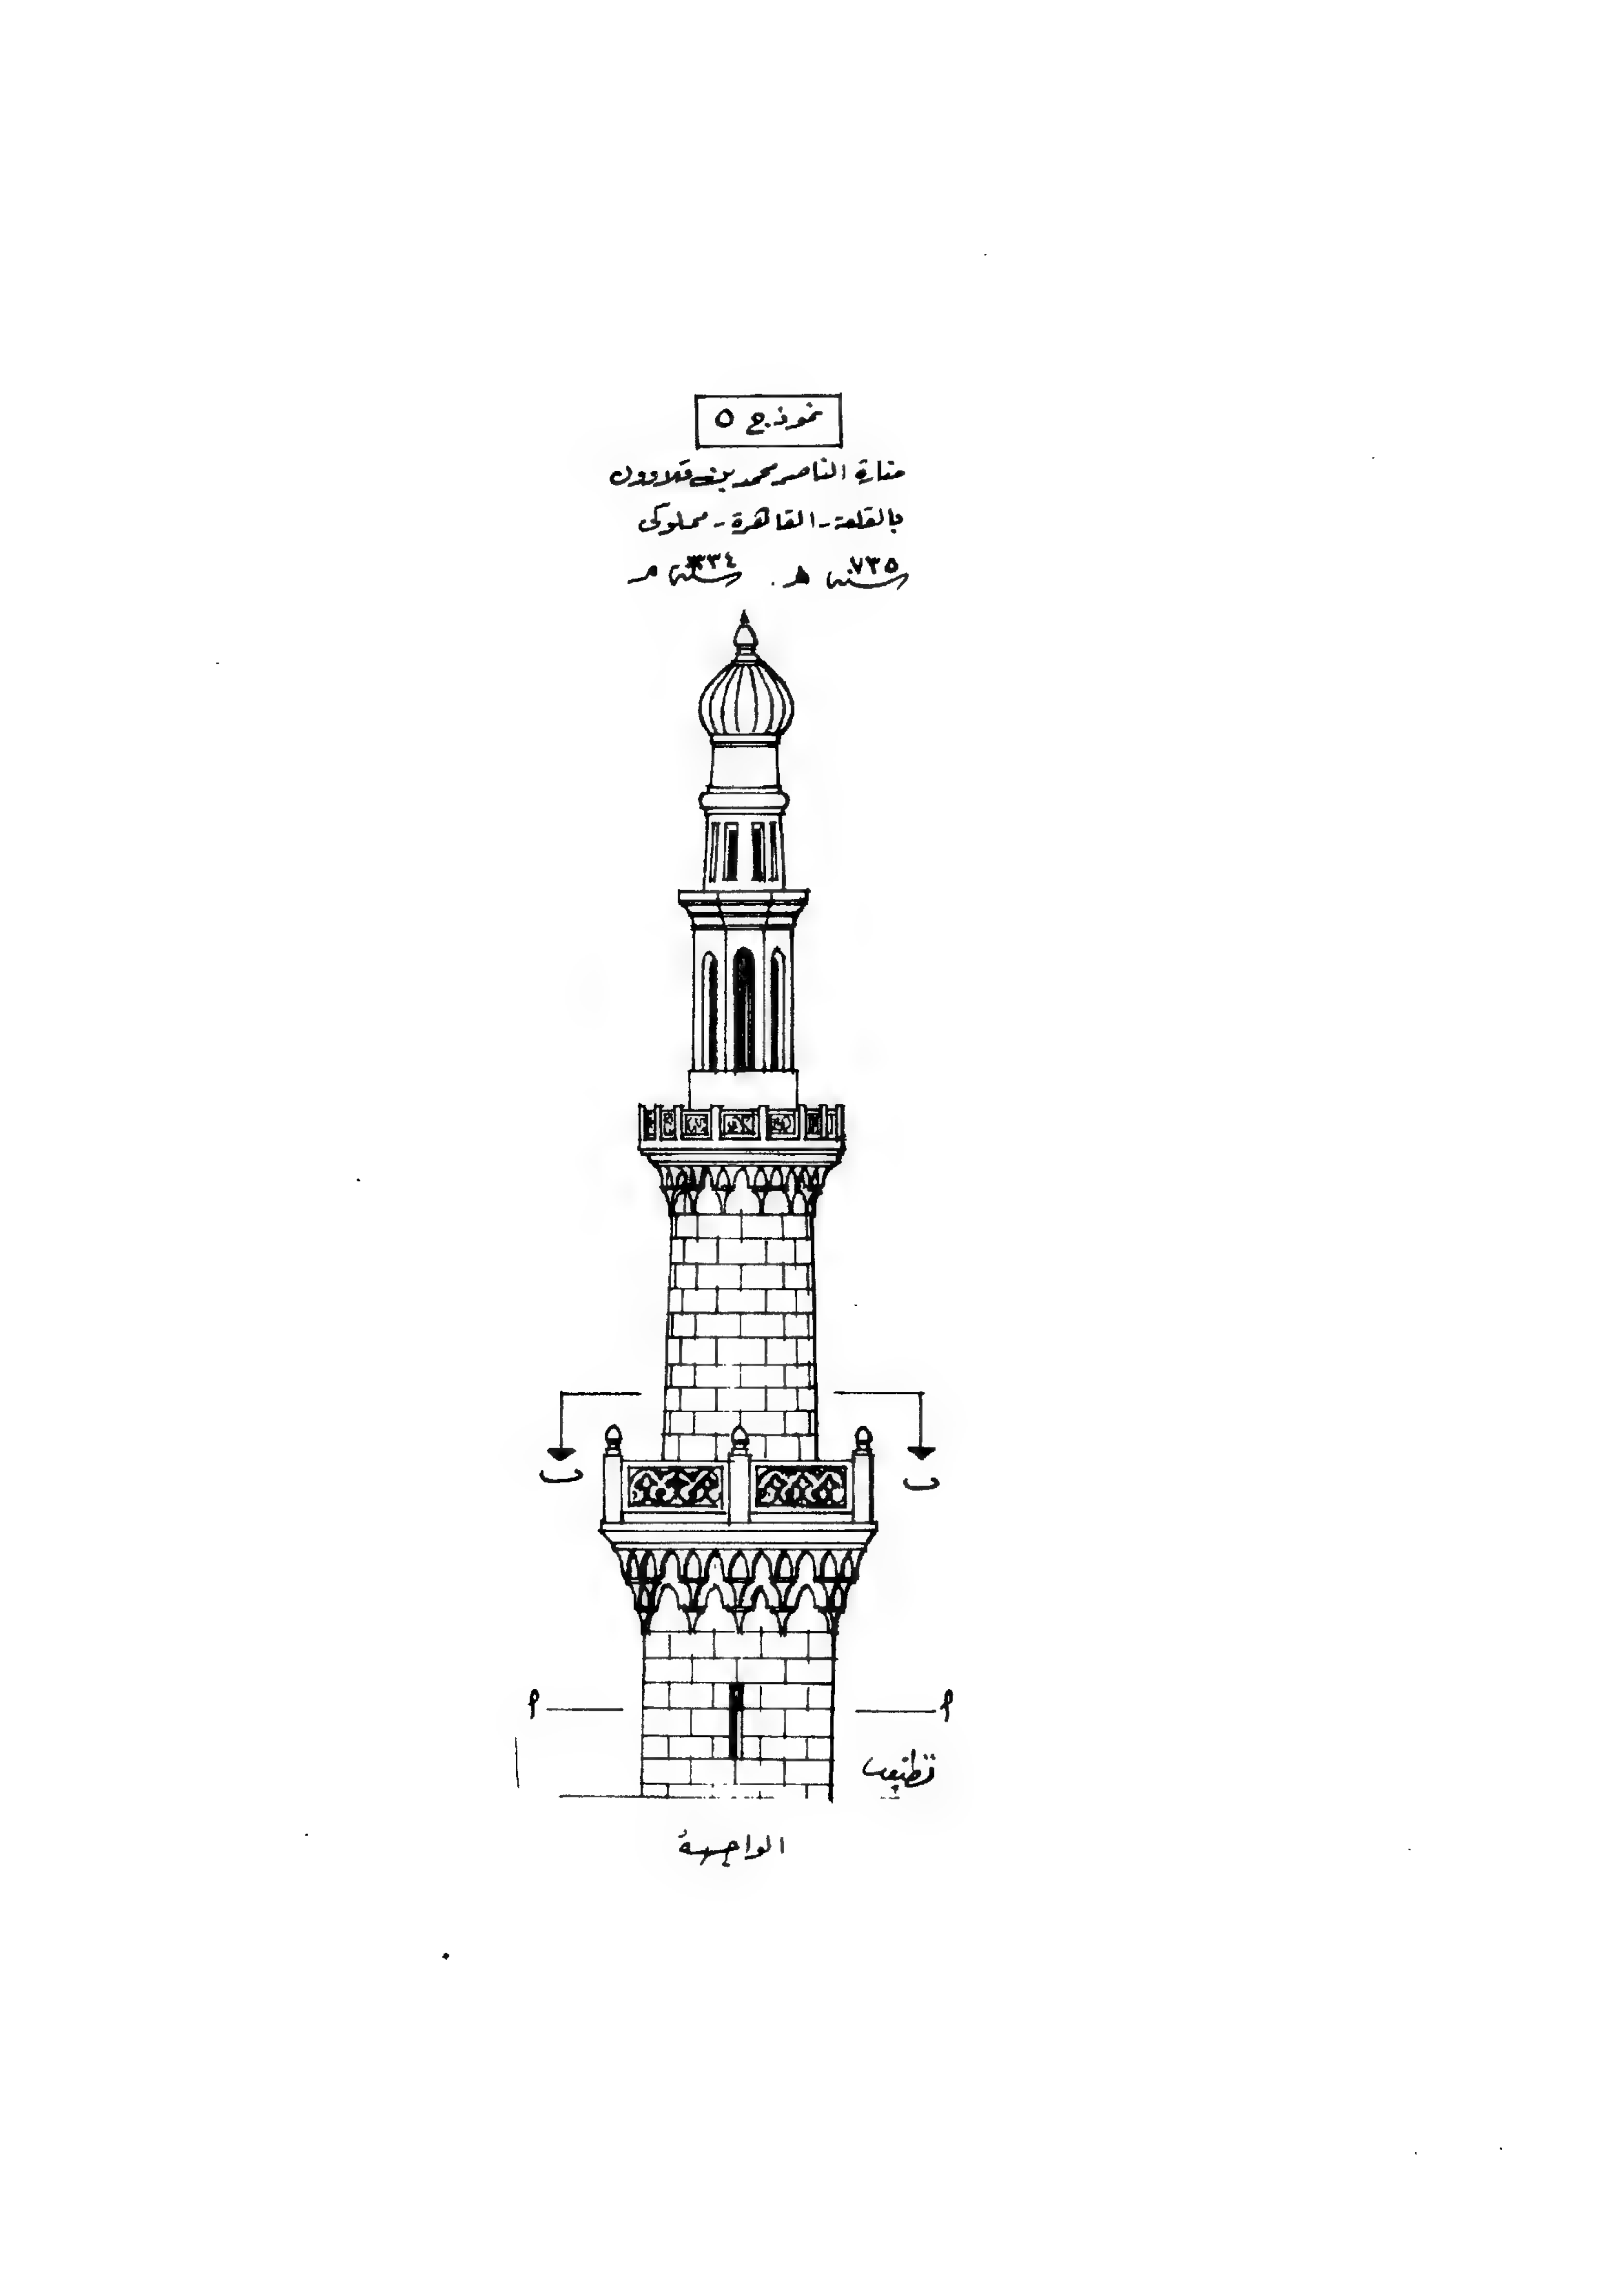 نموذج ٥
منارة الناصر محمد بن قلاوون
بالقلعة - القاهرة - مملوكى
سنة ٧٣٥ هـ . سنة ١٣٣٤ م
ب ب
أ أ
الواجهة